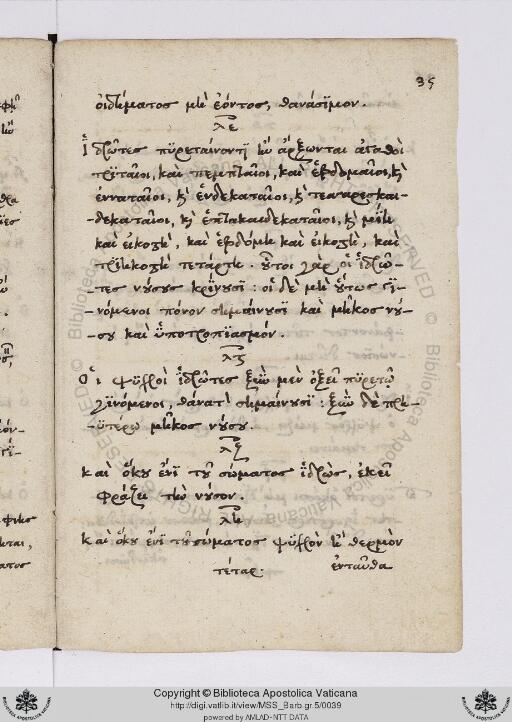 35
οἰδήματος μὴ ἐόντος, θανάσιμον.
λε
Ἱδρῶτες πυρεταίνοντι ἢν ἄρξωνται ἀγαθοὶ
τριταῖοι, καὶ πεμπταῖοι, καὶ ἑβδομαῖοι, κὶ
ἐνναταῖοι, κὶ ἑνδεκαταῖοι, κὶ τεσσαρεσκαι-
-δεκαταῖοι, κὶ ἑπτακαιδεκαταῖοι, κὶ μιῇ
καὶ εἰκοστῇ, καὶ ἑβδόμῃ καὶ εἰκοστῇ, καὶ
τριηκοστῇ τετάρτῃ. οὗτοι γὰρ οἱ ἱδρῶ-
-τες νούσους κρίνουσι: οἱ δὲ μὴ οὕτως γι-
-νόμενοι πόνον σημαίνουσι καὶ μῆκος νού-
-σου καὶ ὑποτροπιασμόν.
λϛ
Οἱ ψυχροὶ ἱδρῶτες ξὺν μὲν ὀξεῖ πυρετῷ
γινόμενοι, θάνατον σημαίνουσι: ξὺν δὲ πρηυ-
-τέρῳ μῆκος νούσου.
λζ
καὶ ὅκου ἐνὶ τοῦ σώματος ἱδρὼς, ἐκεῖ
φράζει τὴν νοῦσον.
λη
καὶ ὅκου ἐνὶ τοῦ σώματος ψυχρὸν ἢ θερμὸν
τέταρ. ἐνταῦθα
Copyright © Biblioteca Apostolica Vaticana
http://digi.vatlib.it/view/MSS_Barb.gr.5/0039
powered by AMLAD-NTT DATA